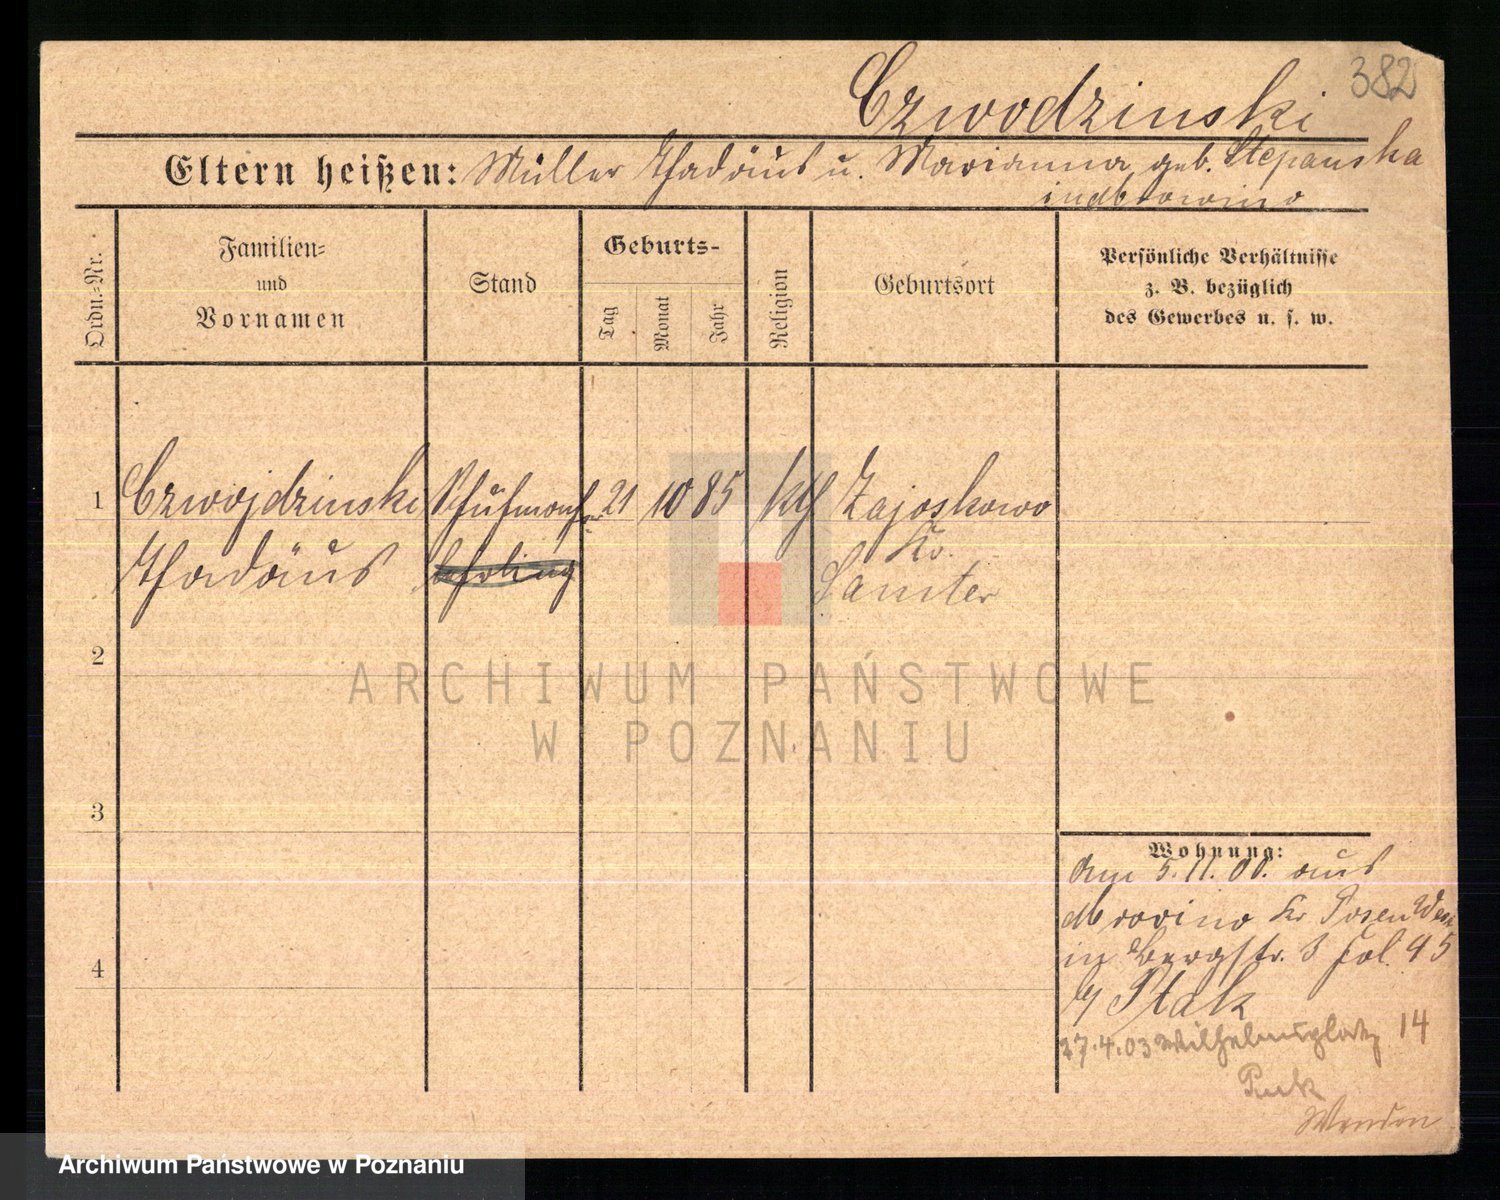 382
Czwodzinski
Eltern heißen: Müller Thadäus u. Marianna geb. Stepanska
in Mrowino
Ordn.-Nr.
Familien-
und
Vornamen
Stand
Geburts-
Tag
Monat
Jahr
Religion
Geburtsort
Persönliche Verhältnisse
z. B. bezüglich
des Gewerbes u. s. w.
1 Czwojdzinski Schuhmacher 21 10 85 kth Zajoskowo
Thadäus lehrling Kr.
Samter
2
3
4
Wohnung:
Am 5.11.00. aus
Mrovino Kr Posen West
in Bergstr. 3 Fol. 95
b/ Ptak
27.4.03 Wilhelmsplatz 14
ARCHIWUM PAŃSTWOWE
W POZNANIU
Archiwum Państwowe w Poznaniu